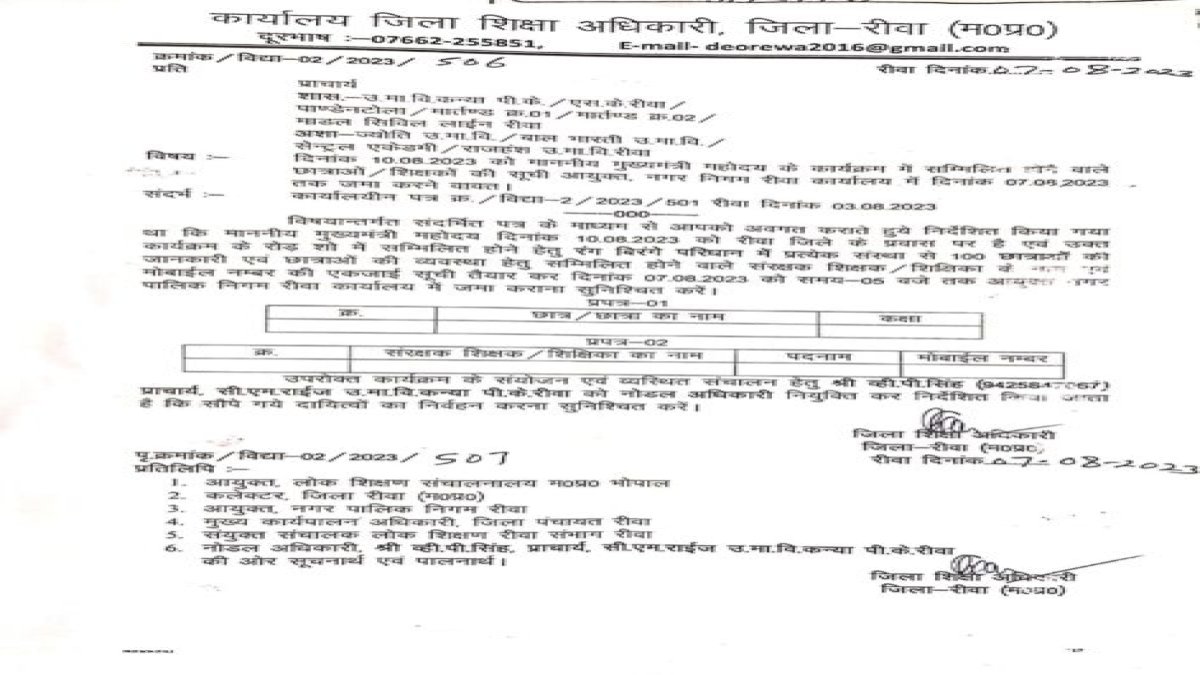 कार्यालय जिला शिक्षा अधिकारी, जिला–रीवा (म0प्र0)
दूरभाष :–07662-255851, E-mail- deorewa2016@gmail.com
क्रमांक/विद्या–02/2023/ 506 रीवा दिनांक 07-08-2023
प्रति
प्राचार्य
शास.–उ.मा.वि.कन्या पी.के./एस.के.रीवा/
पाण्डेनटोला/मार्तण्ड क्र.01/मार्तण्ड क्र.02/
माडल सिविल लाईन रीवा
अशा–ज्योति उ.मा.वि./बाल भारती उ.मा.वि./
सेन्ट्रल एकेडमी/राजहंश उ.मा.वि.रीवा
विषय :– दिनांक 10.08.2023 को माननीय मुख्यमंत्री महोदय के कार्यक्रम में सम्मिलित वाले
छात्राओं/शिक्षकों की सूची आयुक्त, नगर निगम रीवा कार्यालय में दिनांक 07.08.2023
तक जमा करने वावत।
संदर्भ :– कार्यालयीन पत्र क्र./विद्या–2/2023/501 रीवा दिनांक 03.08.2023
——000——
विषयान्तर्गत संदर्भित पत्र के माध्यम से आपको अवगत कराते हुये निर्देशित किया गया
था कि माननीय मुख्यमंत्री महोदय दिनांक 10.08.2023 को रीवा जिले के प्रवास पर है एवं उक्त
कार्यक्रम के रोड़ शो में सम्मिलित होने हेतु रंग बिरंगे परिधान में प्रत्येक संस्था से 100 छात्राओं की
जानकारी एवं छात्राओं की व्यवस्था हेतु सम्मिलित होने वाले संरक्षक शिक्षक/शिक्षिका के नाम एवं
मोबाईल नम्बर की एकजाई सूची तैयार कर दिनांक 07.08.2023 को समय–05 बजे तक आयुक्त नगर
पालिक निगम रीवा कार्यालय में जमा कराना सुनिश्चित करें।
प्रपत्र–01
क्र. छात्र/छात्रा का नाम कक्षा
प्रपत्र–02
क्र. संरक्षक शिक्षक/शिक्षिका का नाम पदनाम मोबाईल नम्बर
उपरोक्त कार्यक्रम के संयोजन एवं व्यस्थित संचालन हेतु श्री व्ही.पी.सिंह
प्राचार्य, सी.एम.राईज उ.मा.वि.कन्या पी.के.रीवा को नोडल अधिकारी नियुक्ति कर निर्देशित किया जाता
है कि सौपे गये दायित्वों का निर्वहन करना सुनिश्चित करें।
जिला शिक्षा अधिकारी
जिला–रीवा (म0प्र0)
पृ.क्रमांक/विद्या–02/2023/ 507 रीवा दिनांक 07-08-2023
प्रतिलिपि :–
1. आयुक्त, लोक शिक्षण संचालनालय म0प्र0 भोपाल
2. कलेक्टर, जिला रीवा (म0प्र0)
3. आयुक्त, नगर पालिक निगम रीवा
4. मुख्य कार्यपालन अधिकारी, जिला पंचायत रीवा
5. संयुक्त संचालक लोक शिक्षण रीवा संभाग रीवा
6. नोडल अधिकारी, श्री व्ही.पी.सिंह, प्राचार्य, सी.एम.राईज उ.मा.वि.कन्या पी.के.रीवा
की ओर सूचनार्थ एवं पालनार्थ।
जिला शिक्षा अधिकारी
जिला–रीवा (म0प्र0)